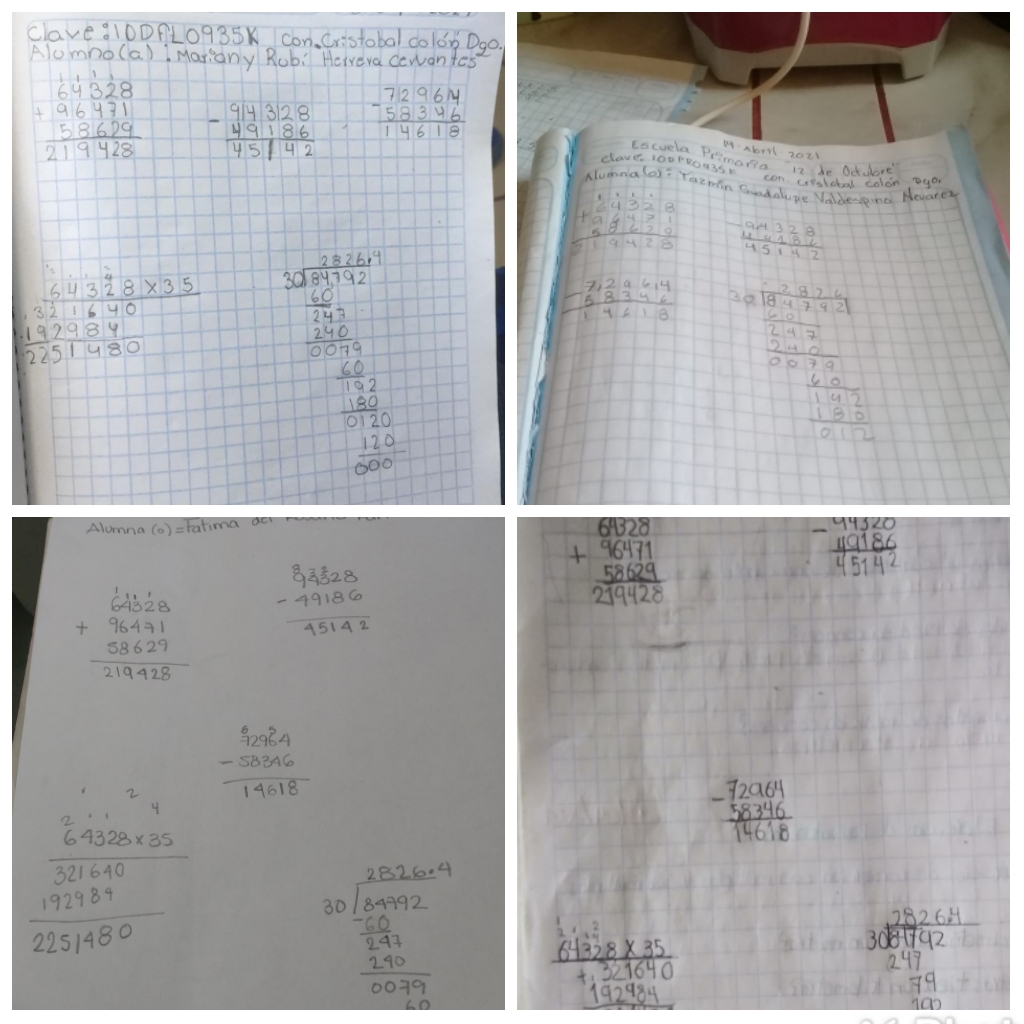 Clave: 10DPL0935K con. Cristobal colón Dgo.
Alumno(a): Mariany Rubi Herrera Cervantes
64328
+ 96471
58629
219428
- 94328
49186
45142
- 72964
58346
14618
64328 x 35
321640
192984
2251480
2826.4
30 84792
60
247
240
0079
60
192
180
0120
120
000
14-Abril-2021
Escuela Primaria "12 de Octubre"
Clave 10DPR0935K con cristobal colón Dgo.
Alumna(o): Yazmin Guadalupe Valdespino Nevarez
64328
+ 96471
58629
219428
- 94328
49186
45142
- 72964
58346
14618
2826
30 84792
60
247
240
0079
60
192
180
012
Alumna (o) = Fatima del
64328
+ 96471
58629
219428
94328
- 49186
45142
72964
- 58346
14618
64328 x 35
321640
192984
2251480
2826.4
30 84792
-60
247
240
0079
60
64328
+ 96471
58629
219428
- 94328
49186
45142
- 72964
58346
14618
64328 x 35
+ 321640
192984
2826.4
30 84792
247
79
192